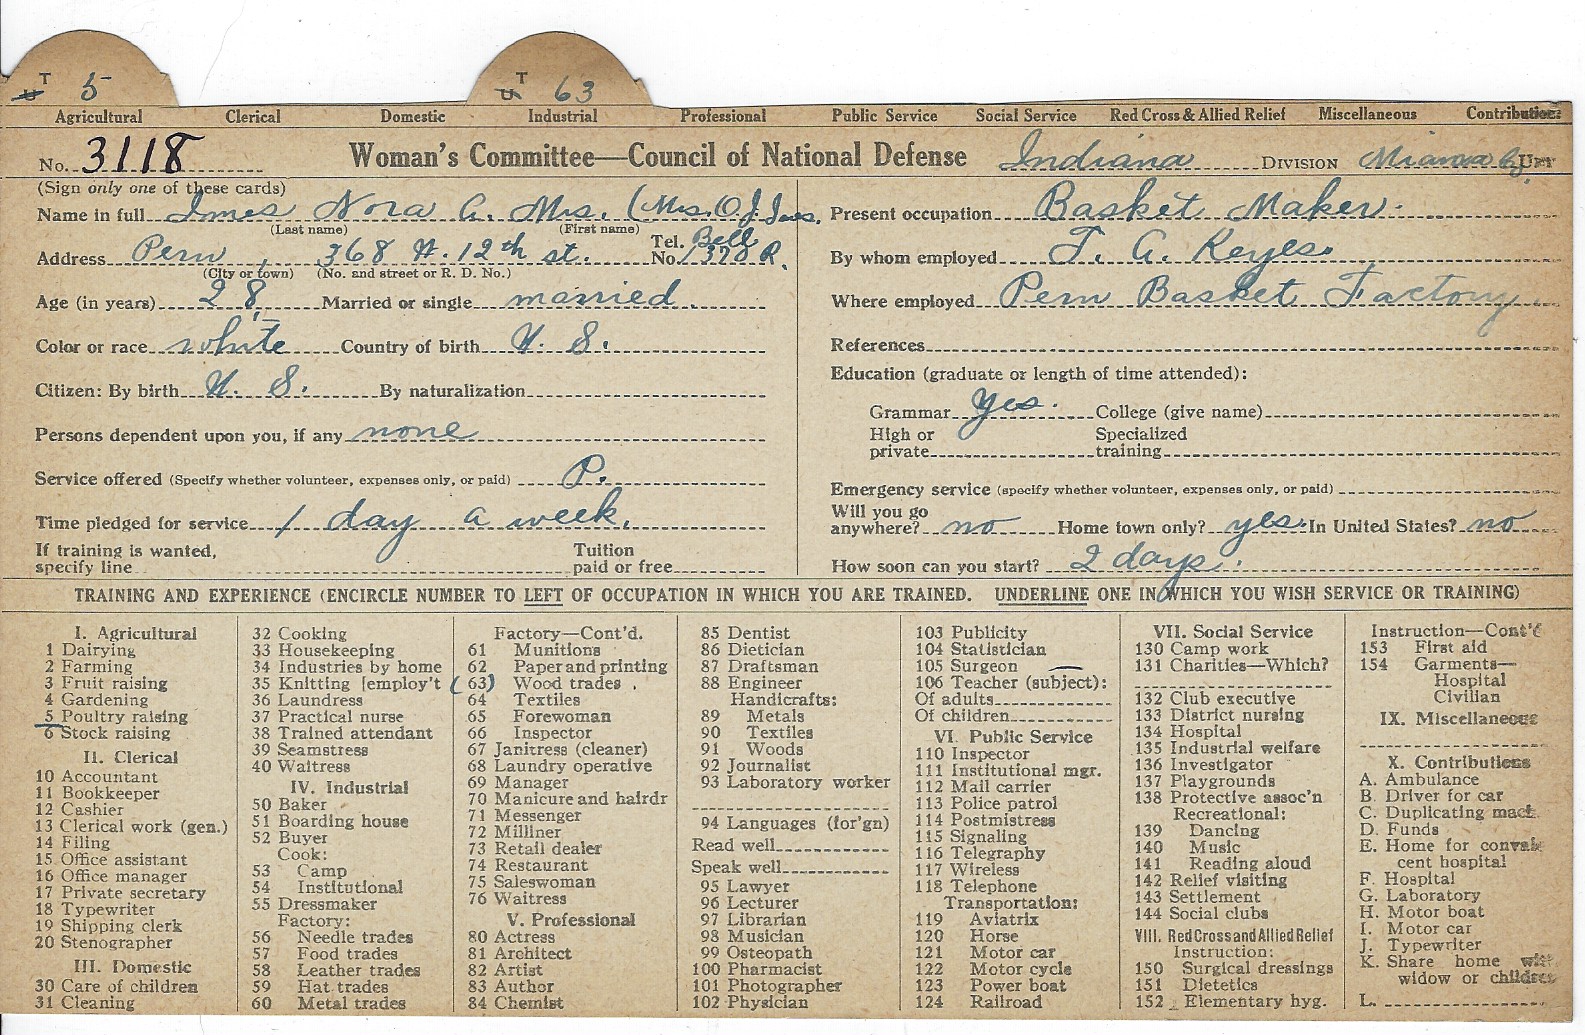 T 5 T 63
U U
Agricultural Clerical Domestic Industrial Professional Public Service Social Service Red Cross & Allied Relief Miscellaneous Contributions
No. 3118 Woman's Committee—Council of National Defense Indiana DIVISION Miami Co. UNIT
(Sign only one of these cards)
Name in full Imes Nora A. Mrs. (Mrs. O. J. Imes.
(Last name) (First name)
Address Peru, 368 W. 12th st. Tel. No. Bell 1378 R.
(City or town) (No. and street or R. D. No.)
Age (in years) 28, Married or single married.
Color or race white Country of birth U. S.
Citizen: By birth U. S. By naturalization
Persons dependent upon you, if any none
Service offered (Specify whether volunteer, expenses only, or paid) P.
Time pledged for service 1 day a week.
If training is wanted, specify line Tuition paid or free
Present occupation Basket Maker.
By whom employed J. A. Keyes.
Where employed Peru Basket Factory
References
Education (graduate or length of time attended):
Grammar yes. College (give name)
High or private Specialized training
Emergency service (specify whether volunteer, expenses only, or paid)
Will you go anywhere? no Home town only? yes. In United States? no
How soon can you start? 2 days.
TRAINING AND EXPERIENCE (ENCIRCLE NUMBER TO LEFT OF OCCUPATION IN WHICH YOU ARE TRAINED. UNDERLINE ONE IN WHICH YOU WISH SERVICE OR TRAINING)
I. Agricultural
1 Dairying
2 Farming
3 Fruit raising
4 Gardening
5 Poultry raising
6 Stock raising
II. Clerical
10 Accountant
11 Bookkeeper
12 Cashier
13 Clerical work (gen.)
14 Filing
15 Office assistant
16 Office manager
17 Private secretary
18 Typewriter
19 Shipping clerk
20 Stenographer
III. Domestic
30 Care of children
31 Cleaning
32 Cooking
33 Housekeeping
34 Industries by home
35 Knitting [employ't
36 Laundress
37 Practical nurse
38 Trained attendant
39 Seamstress
40 Waitress
IV. Industrial
50 Baker
51 Boarding house
52 Buyer
Cook:
53 Camp
54 Institutional
55 Dressmaker
Factory:
56 Needle trades
57 Food trades
58 Leather trades
59 Hat trades
60 Metal trades
Factory—Cont'd.
61 Munitions
62 Paper and printing
(63) Wood trades
64 Textiles
65 Forewoman
66 Inspector
67 Janitress (cleaner)
68 Laundry operative
69 Manager
70 Manicure and hairdr
71 Messenger
72 Milliner
73 Retail dealer
74 Restaurant
75 Saleswoman
76 Waitress
V. Professional
80 Actress
81 Architect
82 Artist
83 Author
84 Chemist
85 Dentist
86 Dietician
87 Draftsman
88 Engineer
Handicrafts:
89 Metals
90 Textiles
91 Woods
92 Journalist
93 Laboratory worker
94 Languages (for'gn)
Read well
Speak well
95 Lawyer
96 Lecturer
97 Librarian
98 Musician
99 Osteopath
100 Pharmacist
101 Photographer
102 Physician
103 Publicity
104 Statistician
105 Surgeon
106 Teacher (subject):
Of adults
Of children
VI. Public Service
110 Inspector
111 Institutional mgr.
112 Mail carrier
113 Police patrol
114 Postmistress
115 Signaling
116 Telegraphy
117 Wireless
118 Telephone
Transportation:
119 Aviatrix
120 Horse
121 Motor car
122 Motor cycle
123 Power boat
124 Railroad
VII. Social Service
130 Camp work
131 Charities—Which?
132 Club executive
133 District nursing
134 Hospital
135 Industrial welfare
136 Investigator
137 Playgrounds
138 Protective assoc'n
Recreational:
139 Dancing
140 Music
141 Reading aloud
142 Relief visiting
143 Settlement
144 Social clubs
VIII. Red Cross and Allied Relief
Instruction:
150 Surgical dressings
151 Dietetics
152 Elementary hyg.
Instruction—Cont'd
153 First aid
154 Garments—
Hospital
Civilian
IX. Miscellaneous
X. Contributions
A. Ambulance
B. Driver for car
C. Duplicating mach.
D. Funds
E. Home for convales-
cent hospital
F. Hospital
G. Laboratory
H. Motor boat
I. Motor car
J. Typewriter
K. Share home with
widow or children
L.